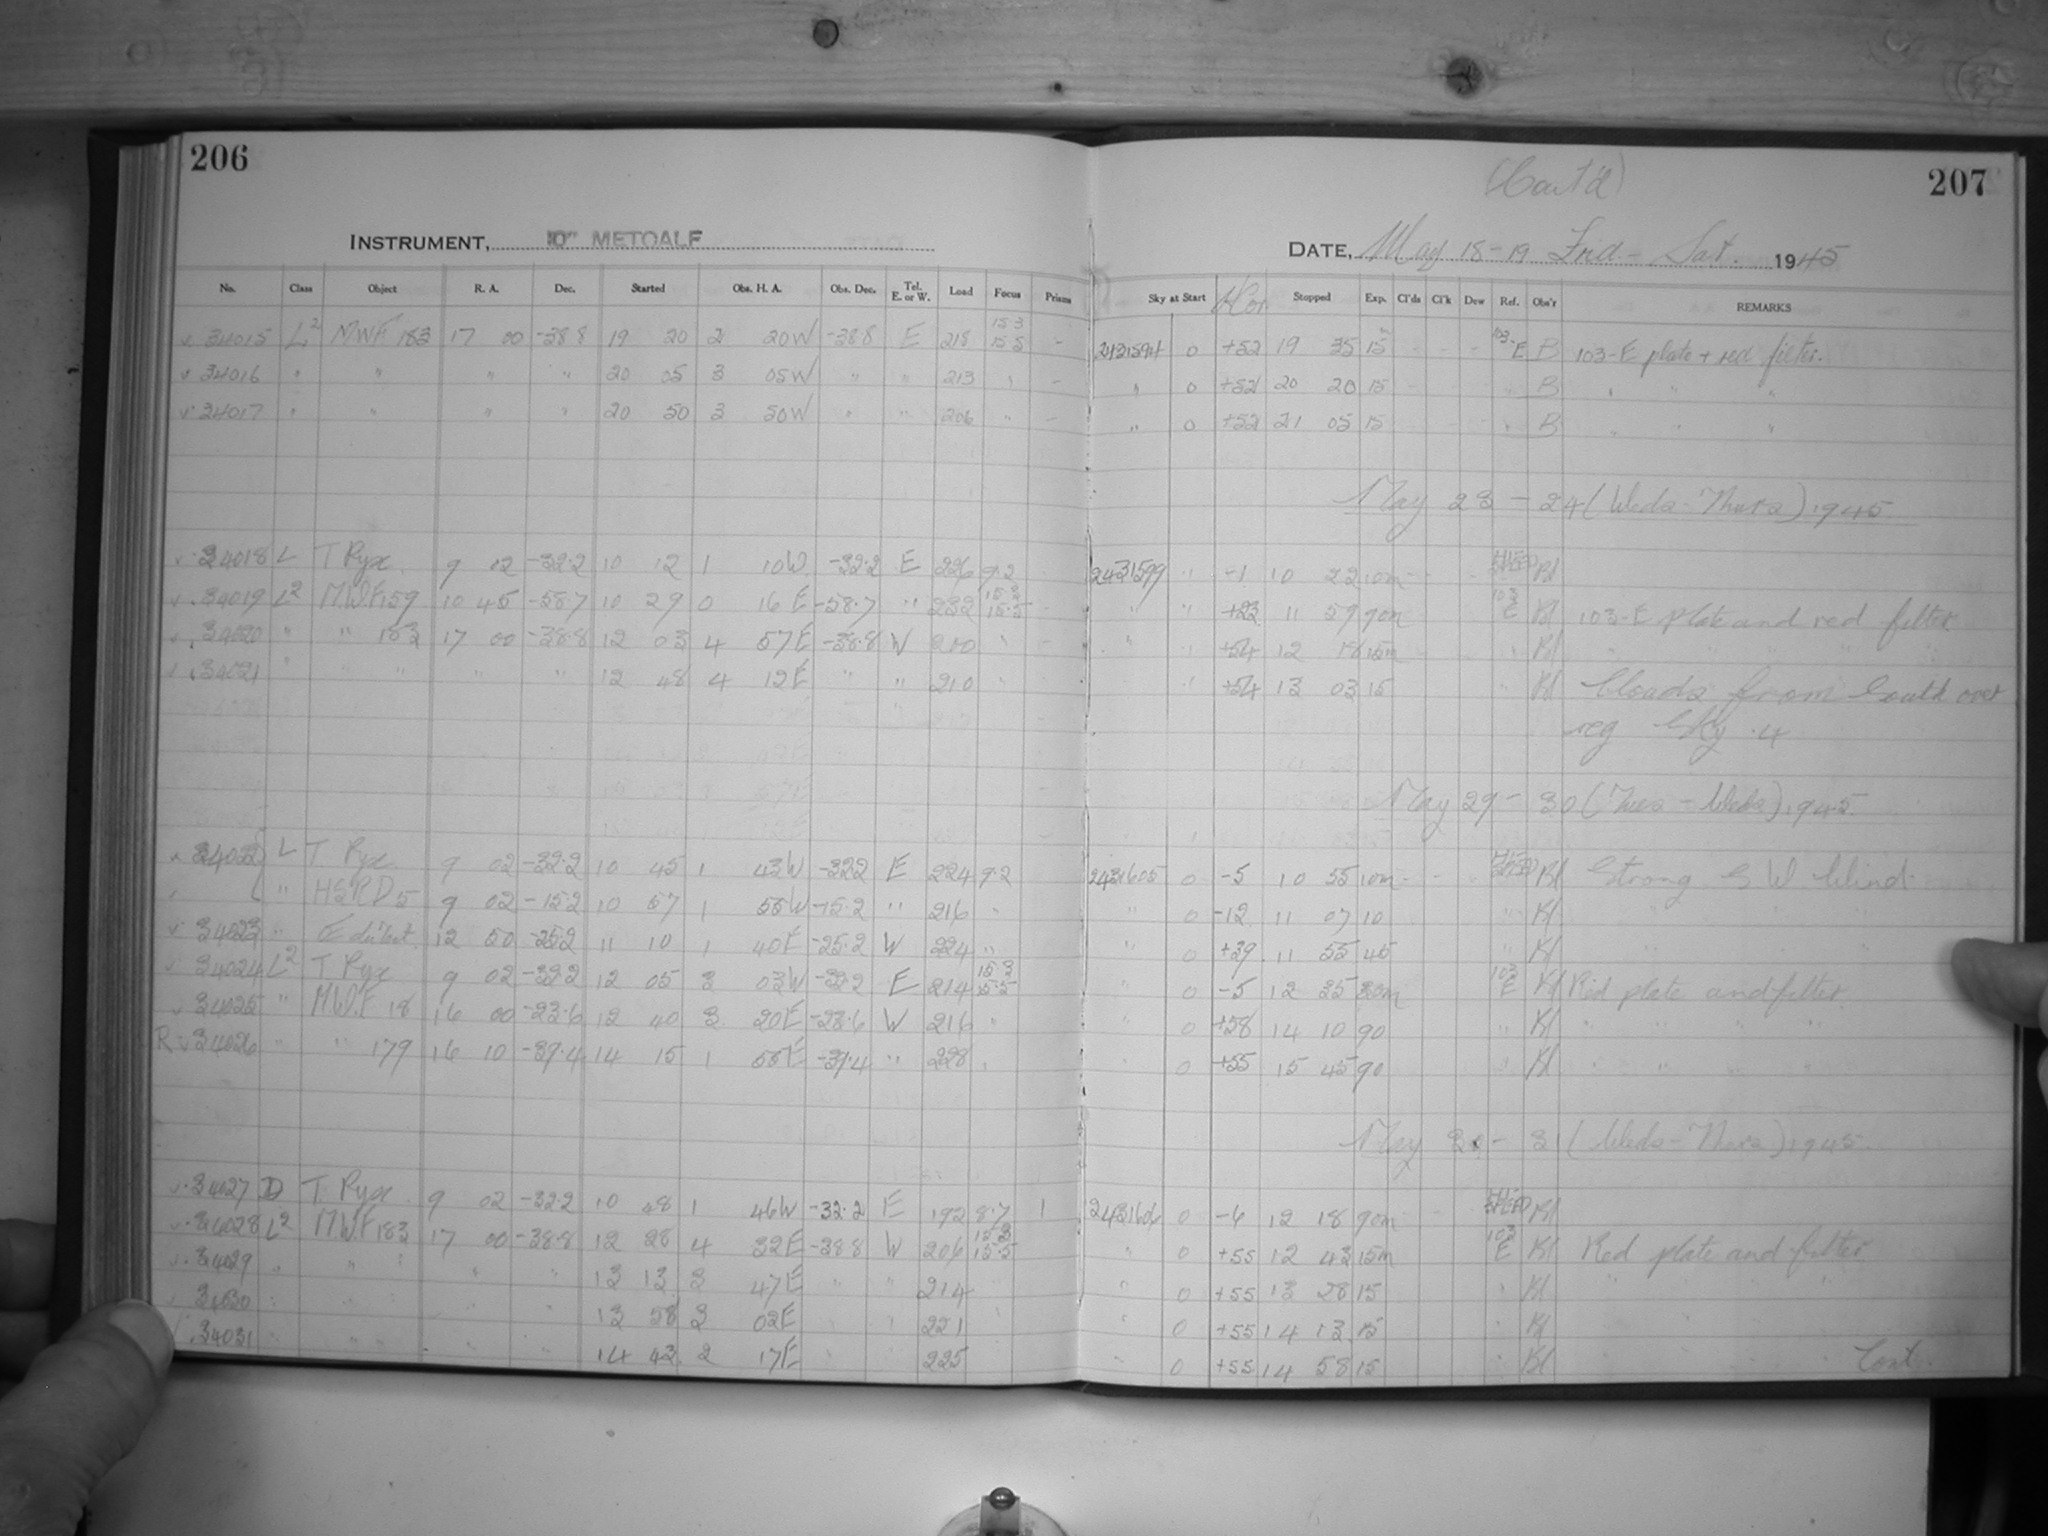 206
INSTRUMENT, 10" METCALF
No. Class Object R. A. Dec. Started Obs. H. A. Obs. Dec. Tel. E. or W. Load Focus Prisms
34015 L2 MWF 183 17 00 -38.8 19 20 2 20W -38.8 E 218 15.3 15.5 -
34016 " " " " 20 05 3 05W " " 213 " -
34017 " " " " 20 50 3 50W " " 206 " -
34018 L T Pyx. 9 12 -32.2 10 12 1 10W -32.2 E 226 9.2
34019 L2 M.W.F. 159 10 45 -58.7 10 29 0 16E -58.7 " 232 15.3 15.5 -
34020 " " 183 17 00 -38.8 12 03 4 57E -38.8 W 200 " -
34021 " " " " " 12 48 4 12E " " 210 "
34022 L T. Pyx. 9 02 -32.2 10 45 1 43W -32.2 E 224 9.2
" HSRD 5 9 02 -15.2 10 57 1 55W -15.2 " 216 "
34023 " 12 50 -25.2 11 10 1 40E -25.2 W 224 "
34024 L2 T. Pyx 9 02 -32.2 12 05 3 03W -32.2 E 214 15.3 15.5
34025 " M.W.F 18 16 00 -23.6 12 40 3 20E -23.6 W 216 "
R 34026 " " 179 16 10 -39.4 14 15 1 55E -39.4 " 228 "
34027 D T. Pyx. 9 02 -32.2 10 48 1 46W -32.2 E 192 8.7 1
34028 L2 M.W.F 183 17 00 -38.8 12 28 4 32E -38.8 W 206 15.3 15.5
34029 " " " " " 13 13 3 47E " " 214
34030 " " " " " 13 58 3 02E " " 221 "
34031 " " " " " 14 43 2 17E " " 225
(Cont'd)
207
DATE, May 18-19 Frid - Sat. 1945
Sky at Start Hor Stopped Exp. Cl'ds Cl'k Dew Ref. Obs'r REMARKS
2431594 0 +52 19 35 15m - - - 103-E B 103-E plate + red filter.
" 0 +52 20 20 15 " B " " "
" 0 +52 21 05 15 " B " " "
May 23 - 24 (Weds - Thurs) 1945
2431599 " -1 10 22 10m Bl
" " +23 11 59 90m 103 E Bl 103-E plate and red filter
" " +54 12 18 15m " Bl " " " " "
" +54 13 03 15 " Bl Clouds from South over
reg Sky .4
May 29 - 30 (Tues - Weds) 1945.
2431605 0 -5 10 55 10m Bl Strong S W Wind.
" 0 -12 11 07 10 " Bl " " "
" 0 +39 11 55 45 " Bl " " "
" 0 -5 12 35 30m 103 E Bl Red plate and filter
" 0 +58 14 10 90 " Bl " " " "
" 0 +55 15 45 90 " Bl " " " "
May 30 - 31 (Weds - Thurs) 1945.
2431606 0 -6 12 18 90m Bl
" 0 +55 12 43 15m 103 E Bl Red plate and filter
" 0 +55 13 28 15 " Bl " " " "
" 0 +55 14 13 15 " Bl " " " "
" 0 +55 14 58 15 " Bl Cont.